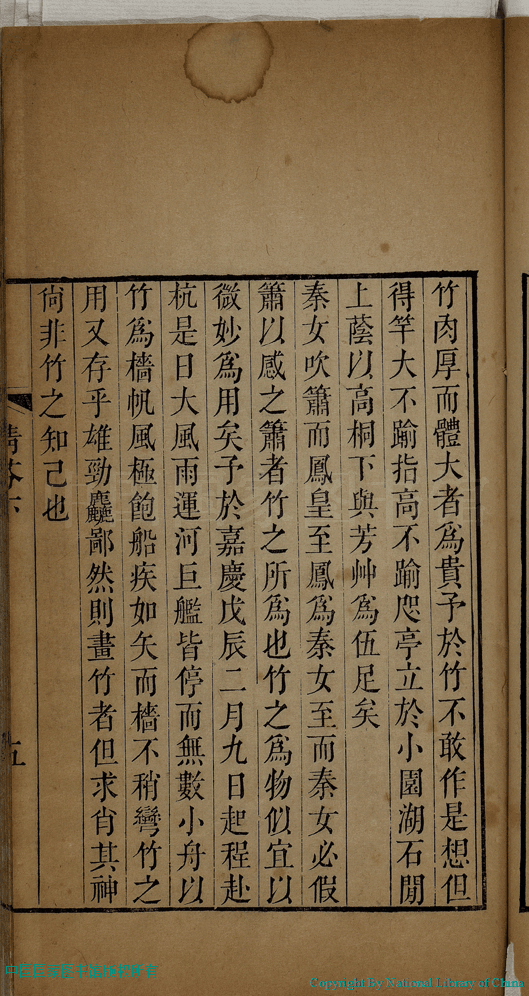 竹肉厚而體大者爲貴予於竹不敢作是想但
得竿大不踰指高不踰咫亭立於小園湖石閒
上蔭以高桐下與芳艸爲伍足矣
秦女吹簫而鳳皇至鳳爲秦女至而秦女必假
簫以感之簫者竹之所爲也竹之爲物似宜以
微妙爲用矣予於嘉慶戊辰二月九日起程赴
杭是日大風雨運河巨艦皆停而無數小舟以
竹爲檣帆風極飽船疾如矢而檣不稍彎竹之
用又存乎雄勁麤鄙然則畫竹者但求肖其神
尙非竹之知己也
五
Copyright By National Library of China